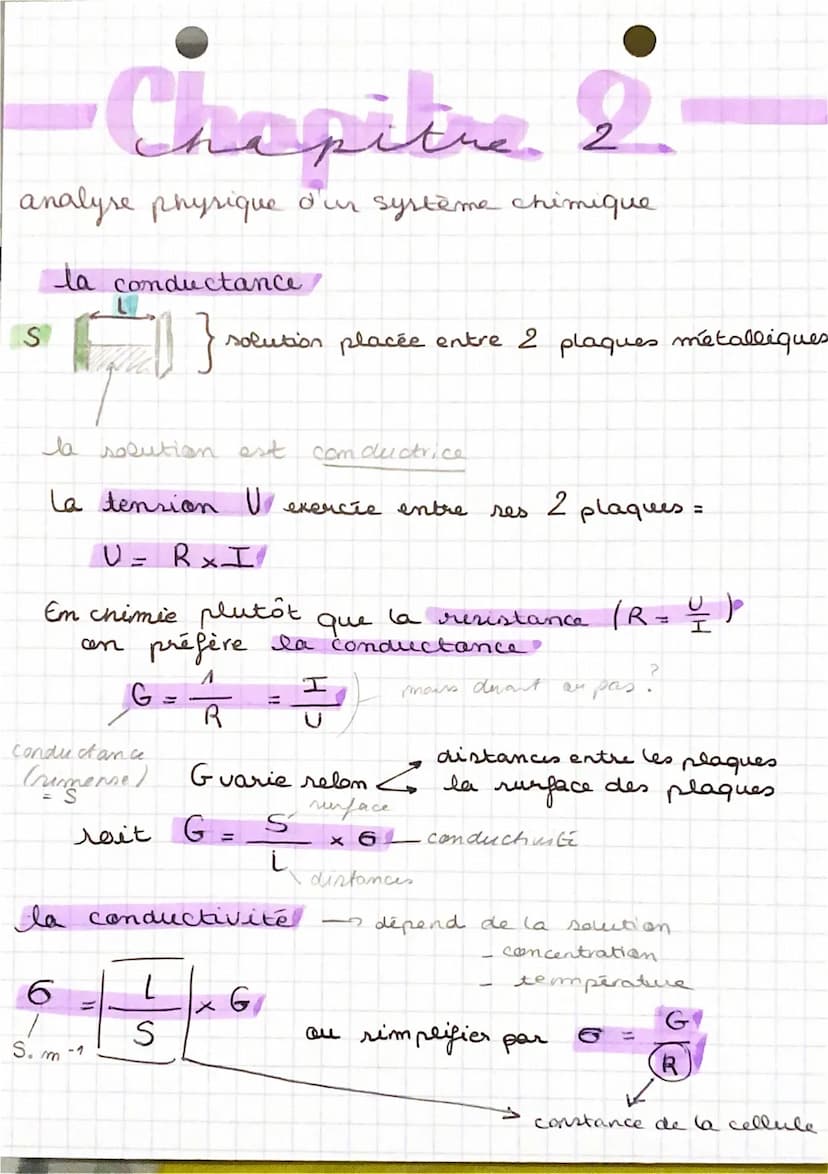 Chapitre 2
chapitre 2
analyse physique d'un système chimique
la conductance
L
S
} solution placée entre 2 plaques métalliques
la solution est conductrice
La tension U exercée entre ses 2 plaques =
U = R x I
En chimie plutôt que la resistance (R = U/I)
on préfère la conductance
G = 1/R = I/U
pas ?
conductance
= S
G varie selon
distances entre les plaques
la surface des plaques
soit G = S/L x σ
surface
conductivité
distances
la conductivité → dépend de la solution
- concentration
- température
σ = L/S x G
S.m⁻¹
ou simplifier par σ = G/R
constance de la cellule